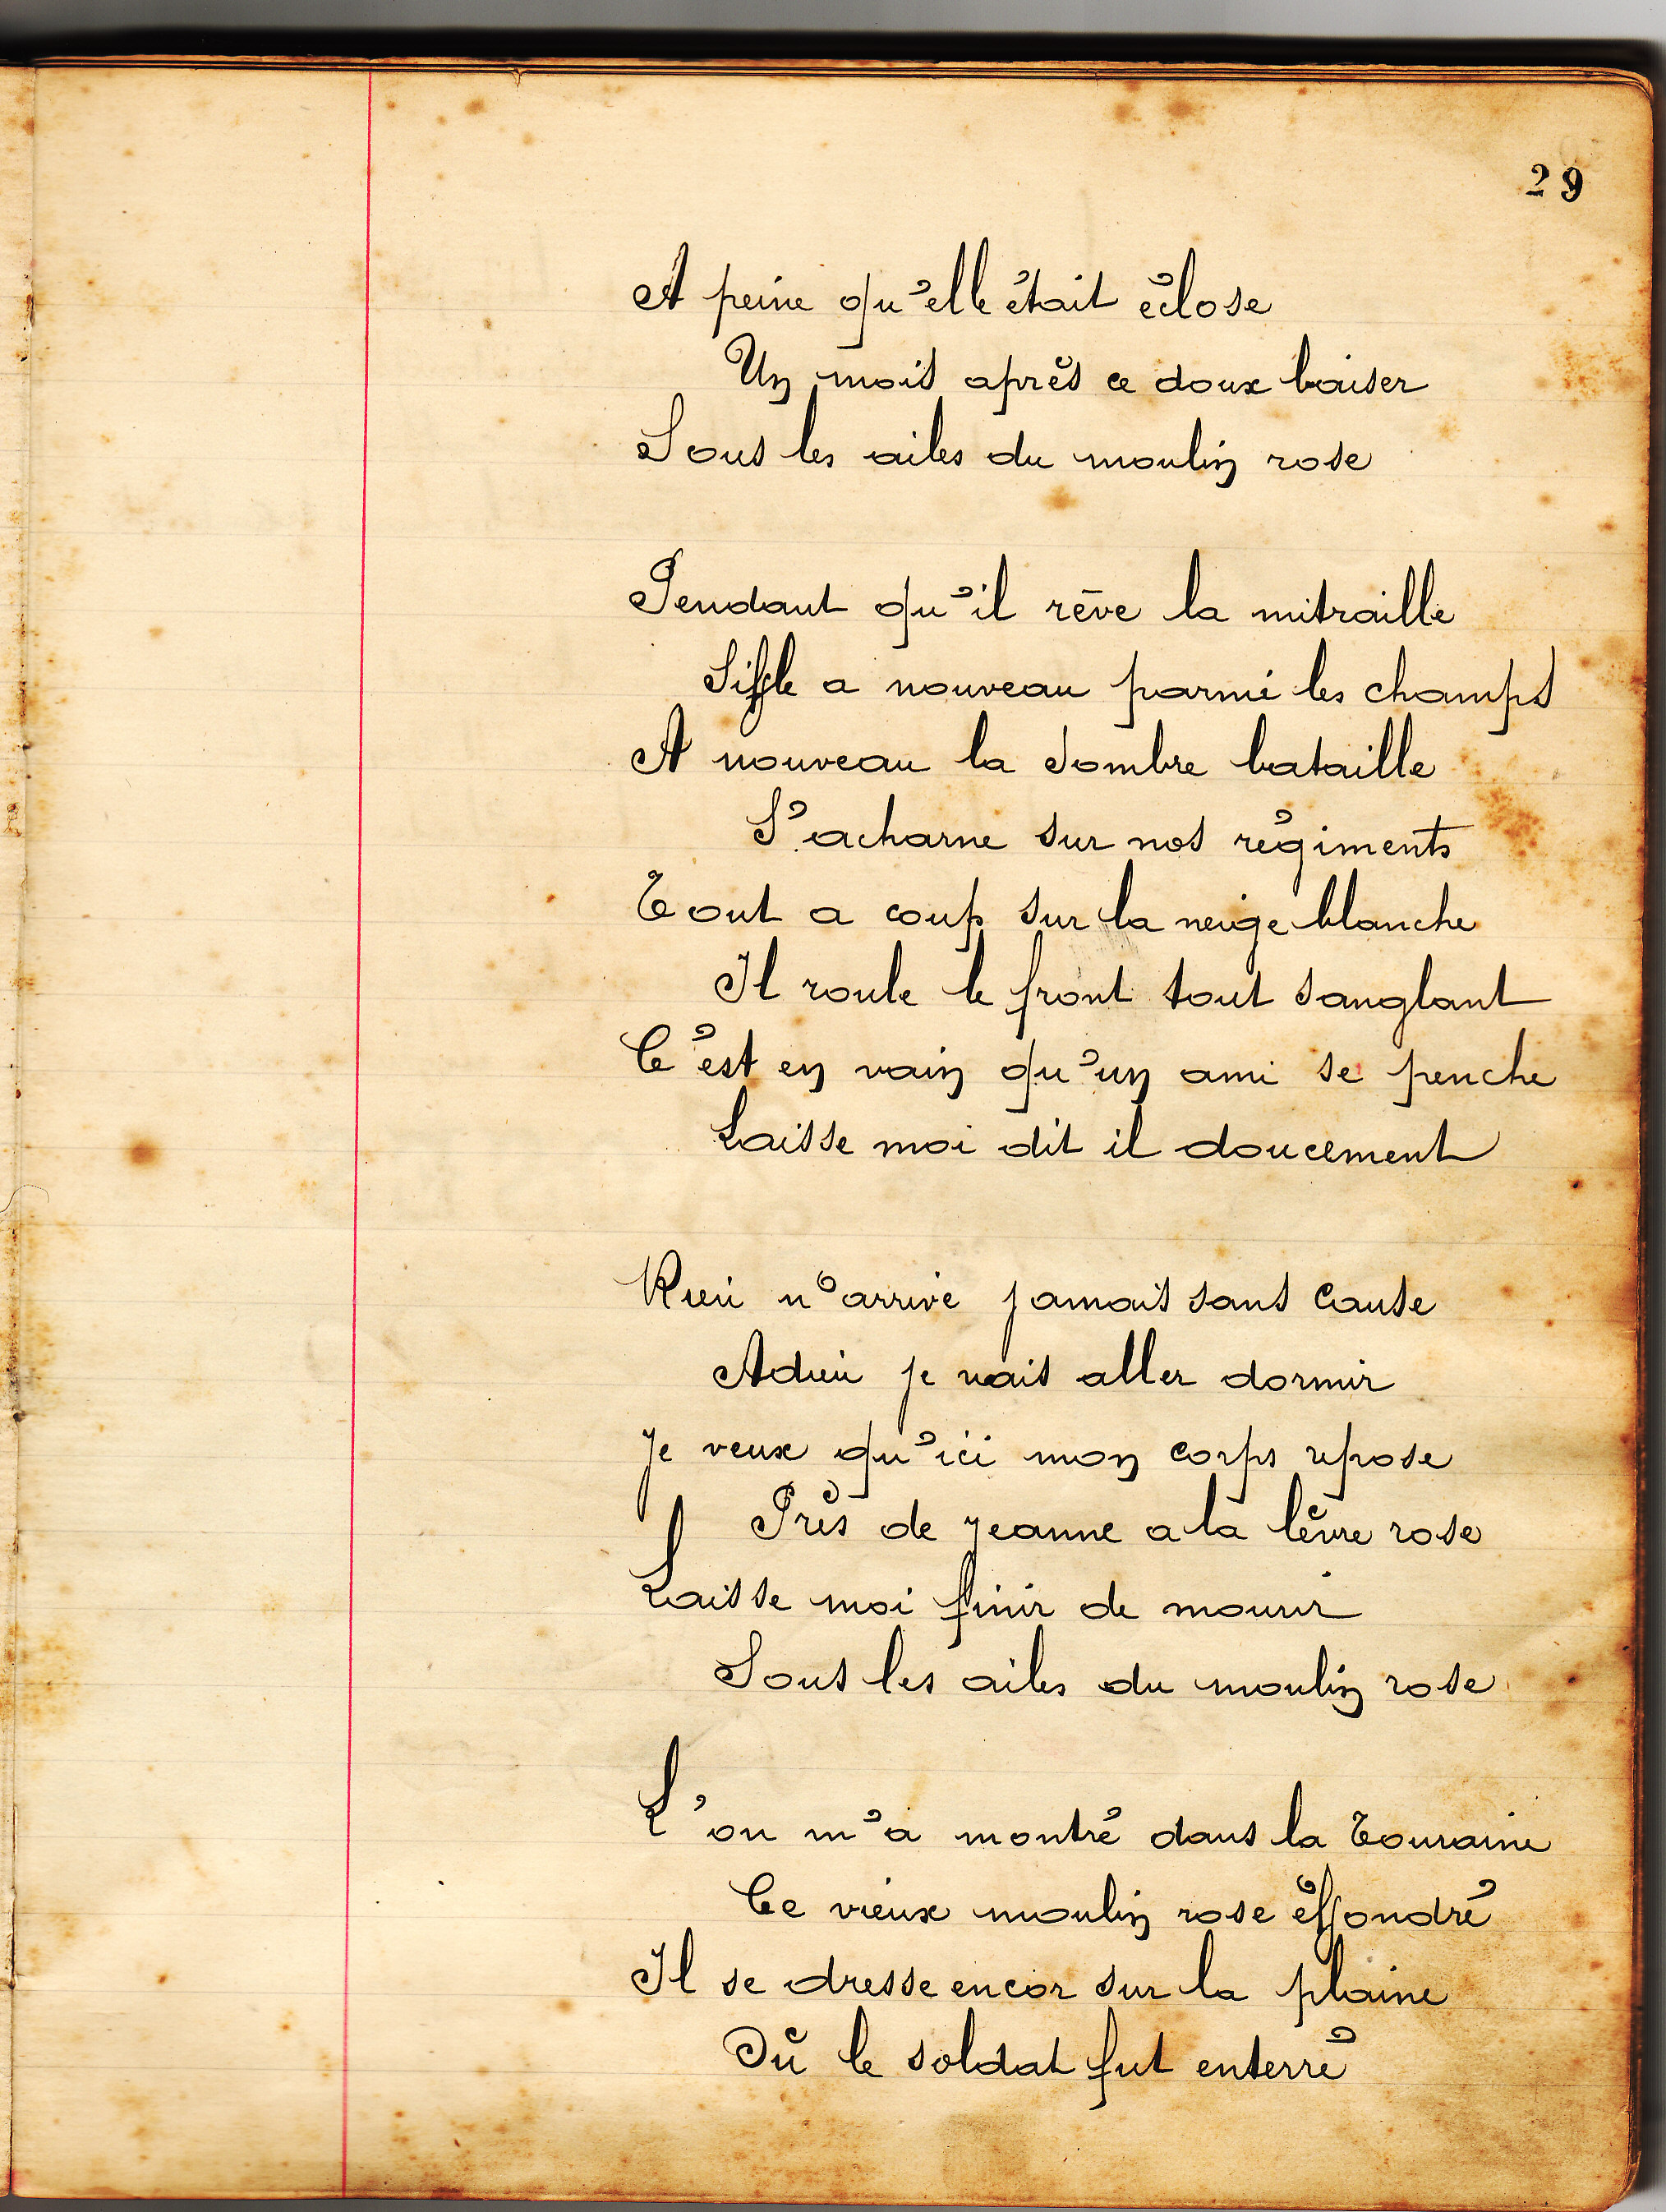 29
A peine qu'elle était éclose
Un mois après ce doux baiser
Sous les ailes du moulin rose
Pendant qu'il rêve la mitraille
Siffle a nouveau parmi les champs
A nouveau la sombre bataille
S'acharne sur nos régiments
Tout a coup sur la neige blanche
Il roule le front tout sanglant
C'est en vain qu'un ami se penche
Laisse moi dit il doucement
Rien n'arrive jamais sans cause
Adieu je vais aller dormir
Je veux qu'ici mon corps repose
Près de Jeanne a la lèvre rose
Laisse moi finir de mourir
Sous les ailes du moulin rose
L'on m'a montré dans la Touraine
Ce vieux moulin rose éffondré
Il se dresse encor sur la plaine
Où le soldat fut enterré